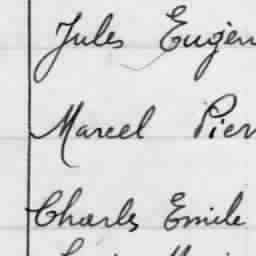 Jules Eugèn
Marcel Pier
Charles Emile